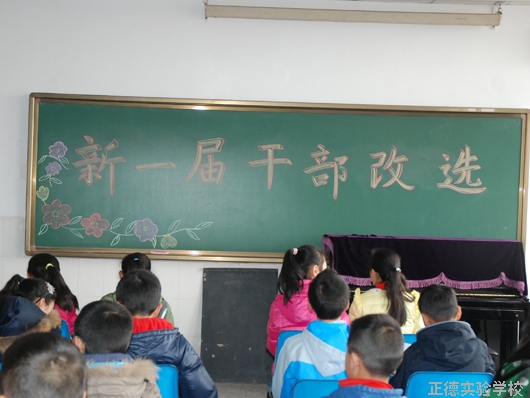 新一届干部改选
正德实验学校